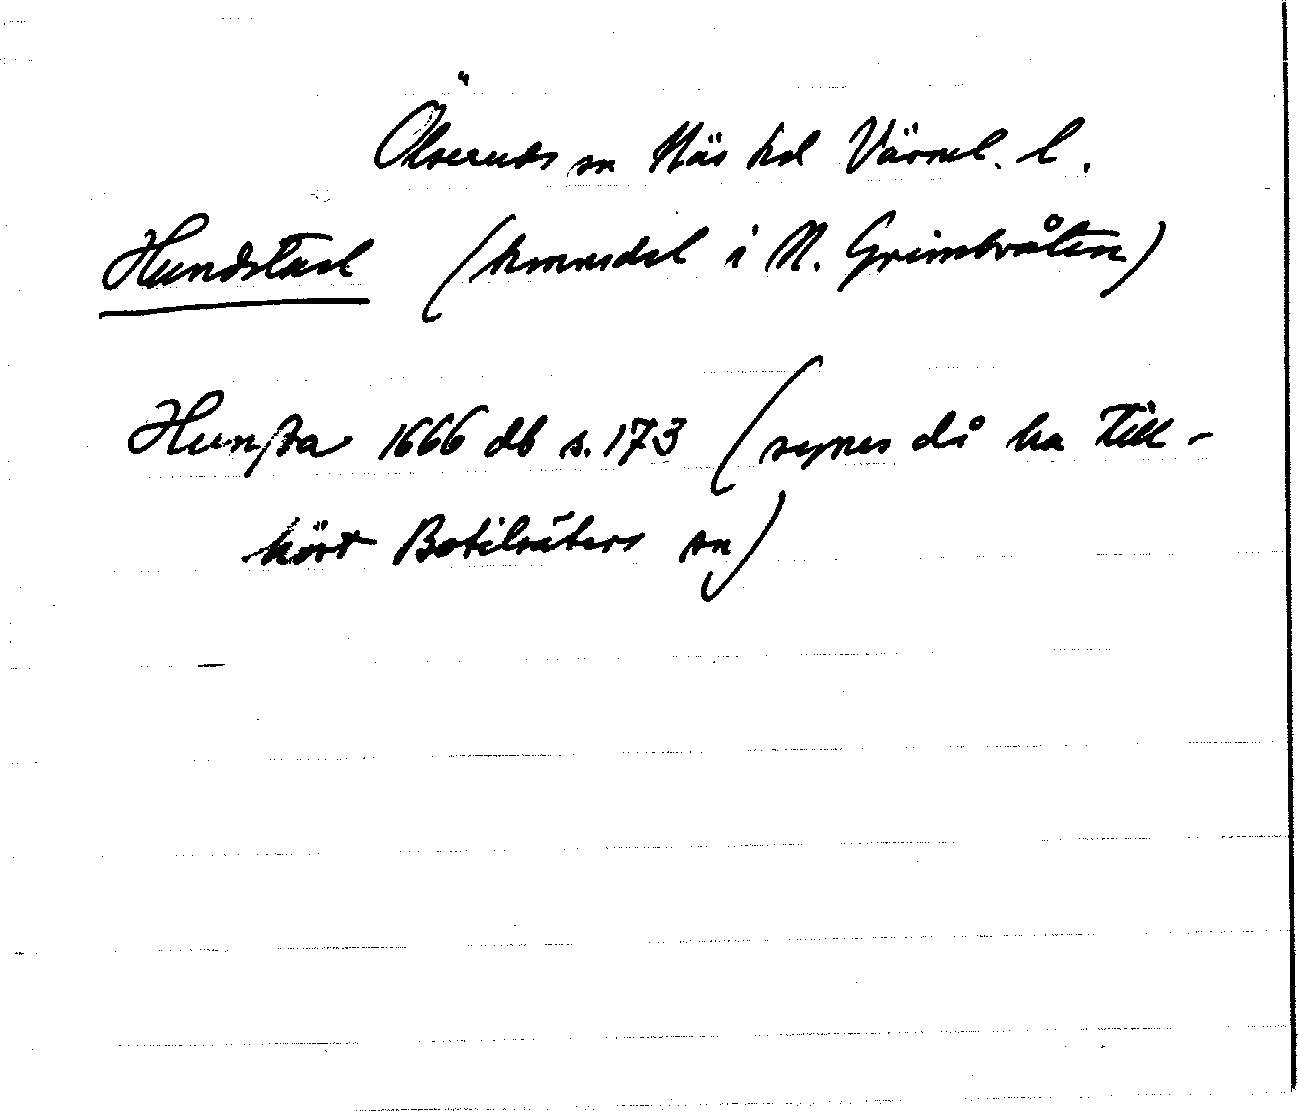 Ölseruds sn Näs hd Värml. l.
Hundstad (hmnsdel i N. Grimbråten)
Hunsta 1666 db s. 173 (synes då ha till-
hört Botilsäters sn)